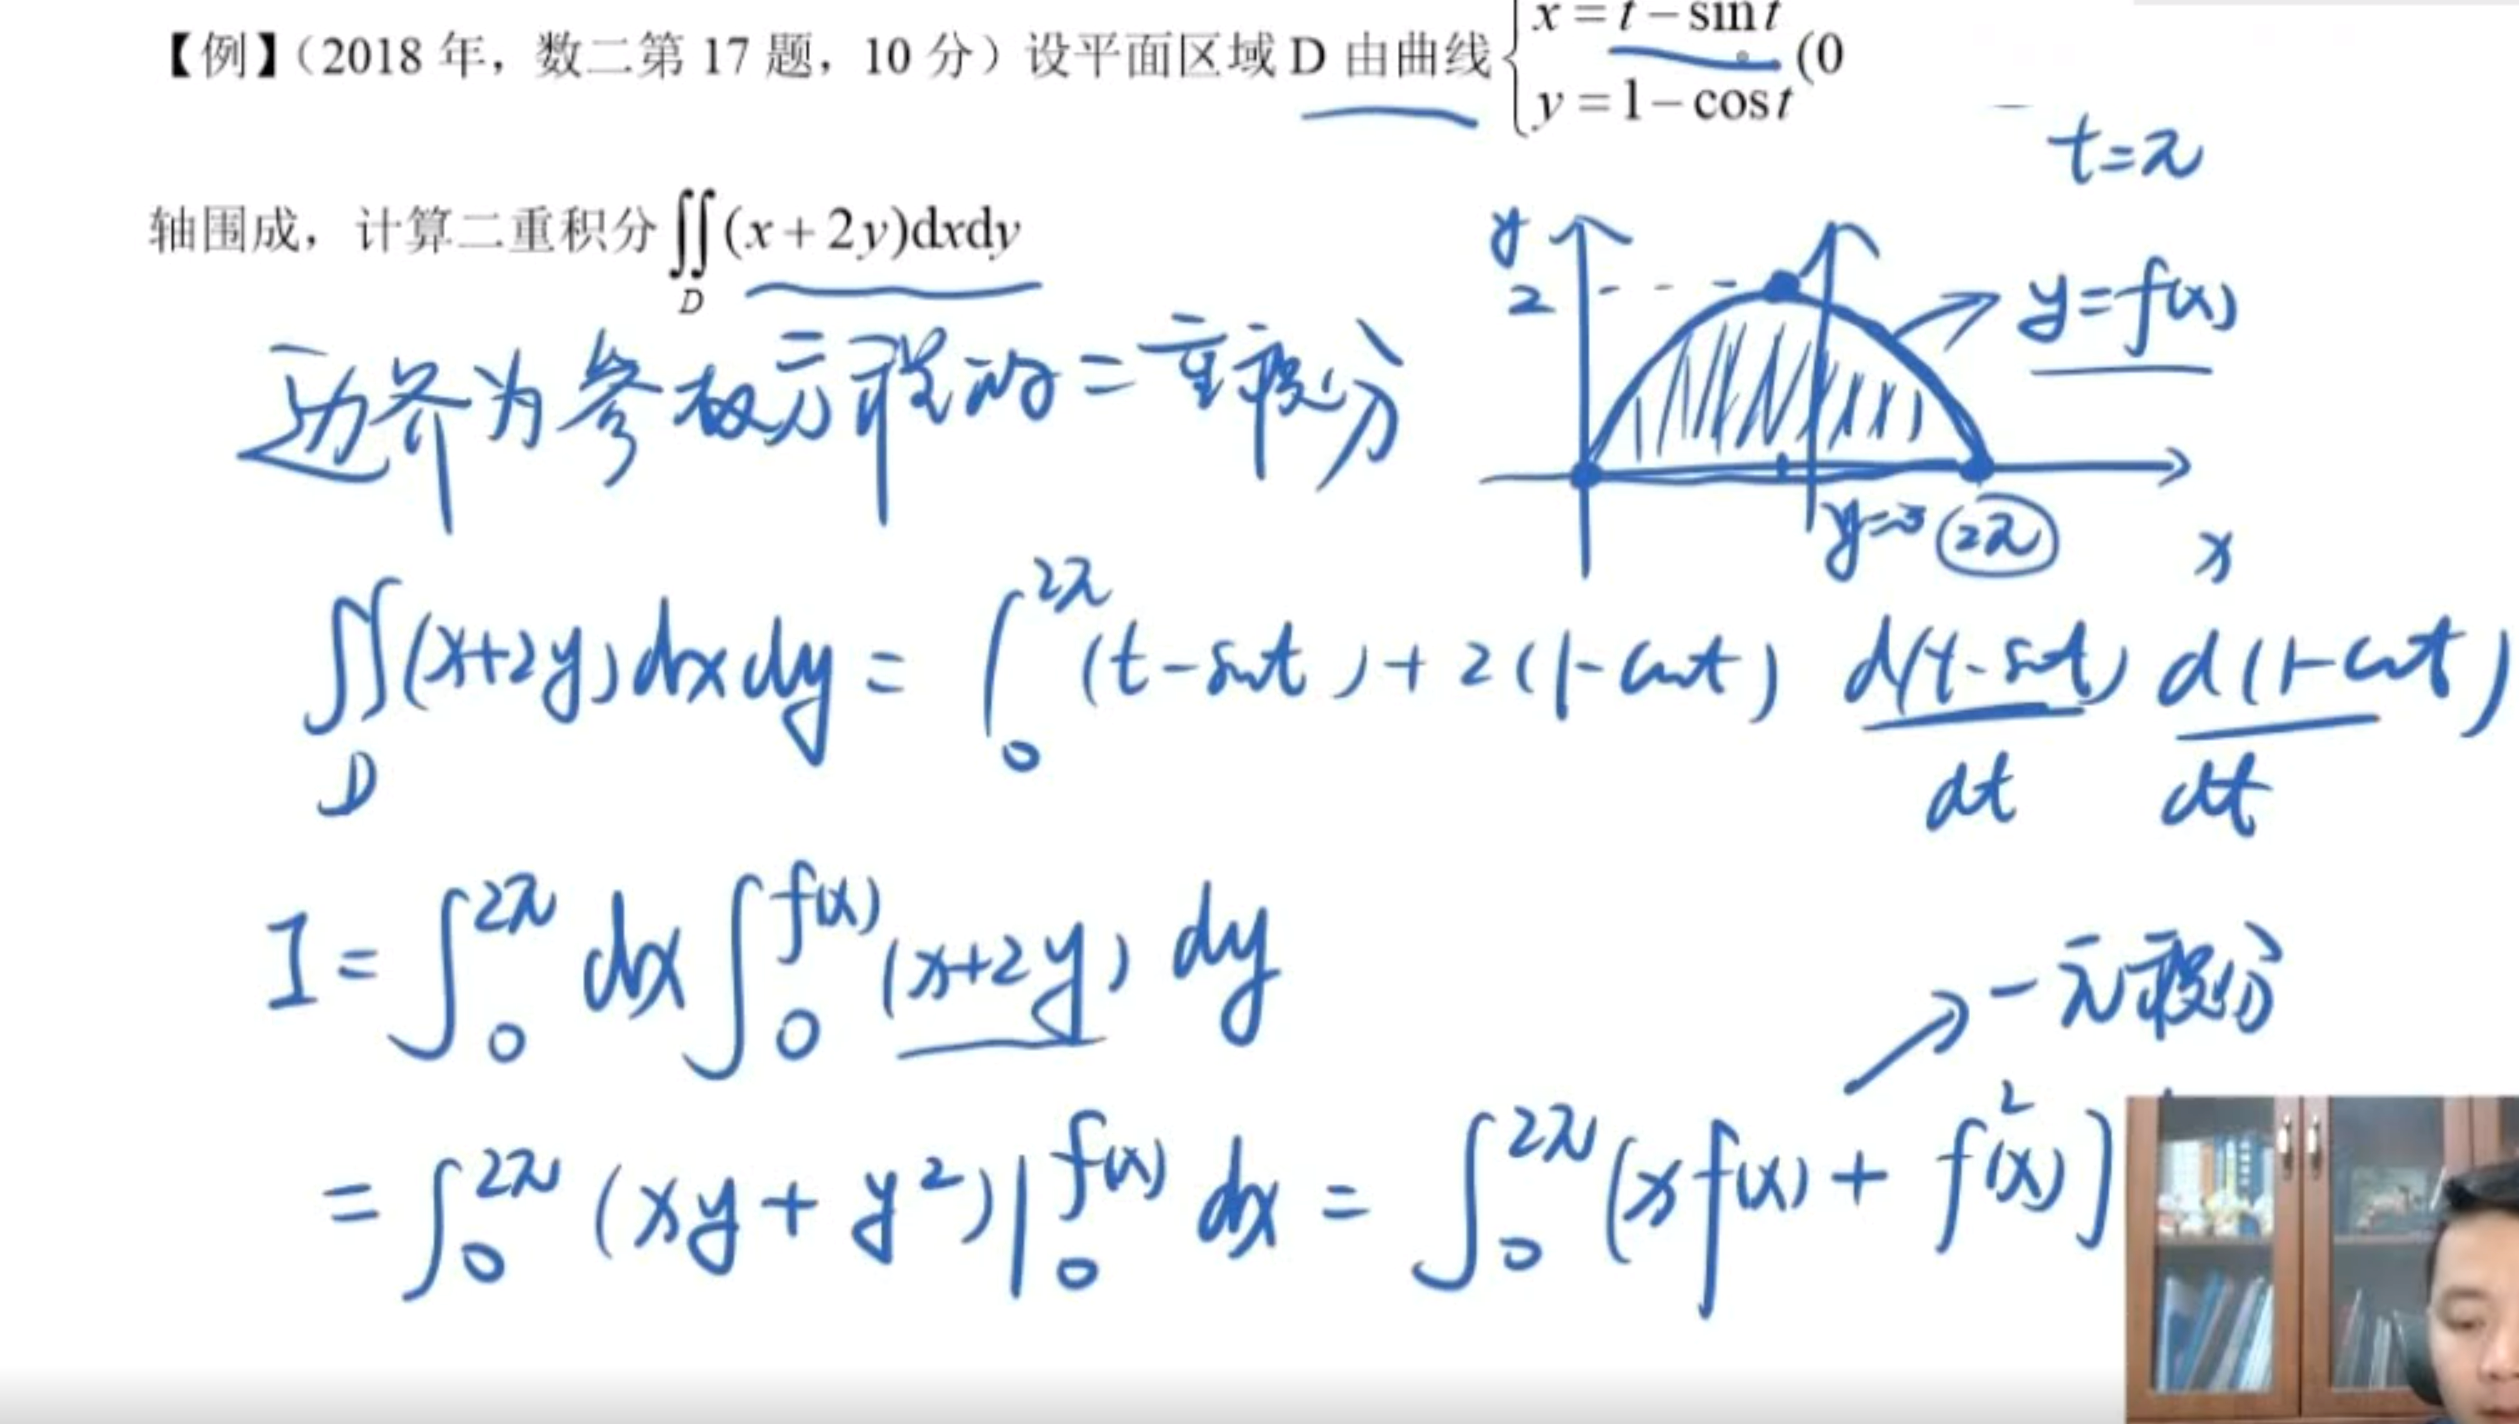 【例】（2018 年，数二第 17 题，10 分）设平面区域 D 由曲线 { x = t − sin t, y = 1 − cos t (0
t=π
轴围成，计算二重积分 ∬_D (x + 2y)dxdy
y
2
y=f(x)
边界为参数方程的二重积分
y=0
2π
x
∬_D (x+2y)dxdy = ∫_0^{2π} (t-sint)+2(1-cost) d(t-sint)/dt d(1-cost)/dt
I = ∫_0^{2π} dx ∫_0^{f(x)} (x+2y) dy
一元积分
= ∫_0^{2π} (xy+y²)|_0^{f(x)} dx = ∫_0^{2π} [xf(x)+f²(x)]